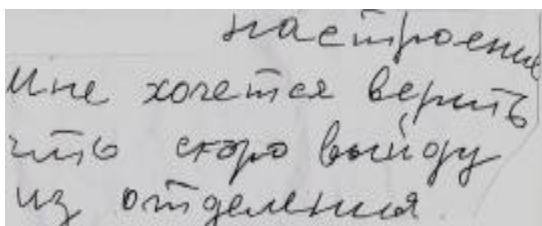 настроение
Мне хочется верить
что скоро выйду
из отделения.